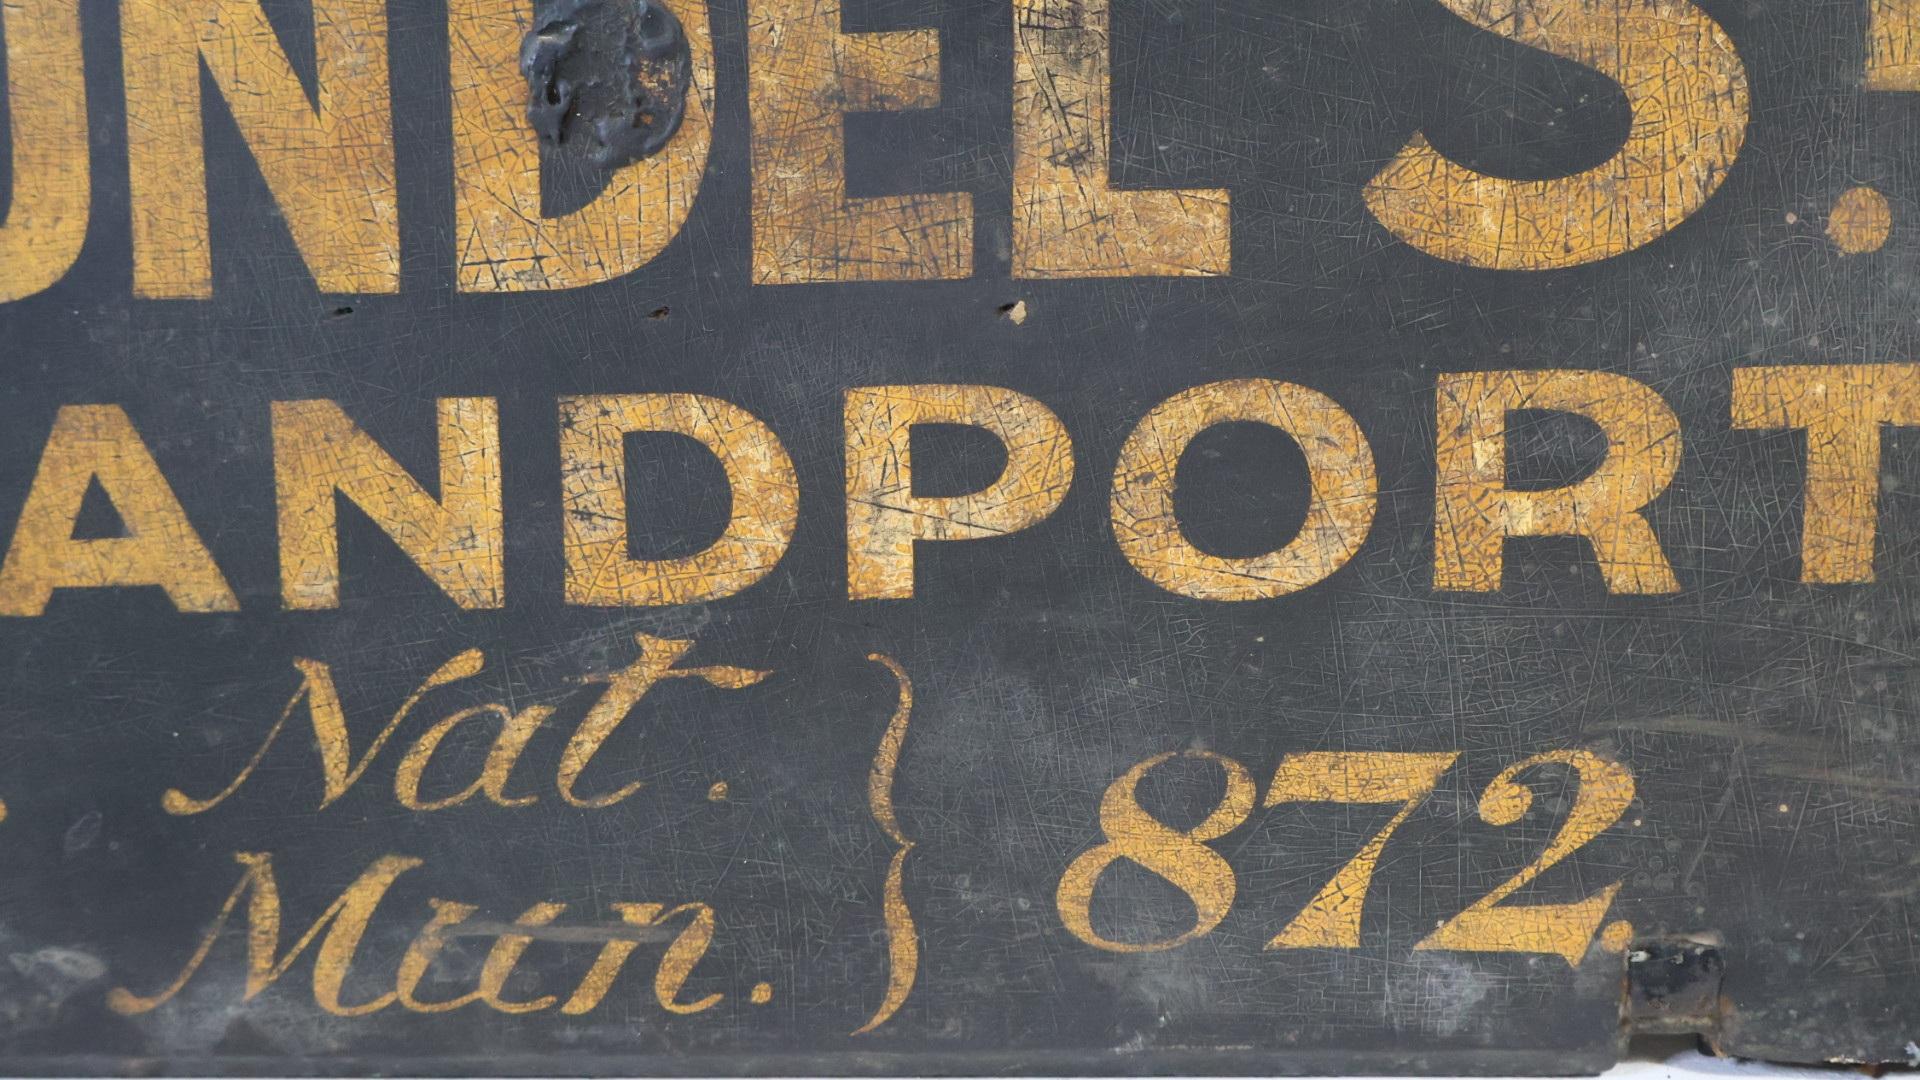 UNDEL S.
ANDPORT
Nat.
Mun. } 872.